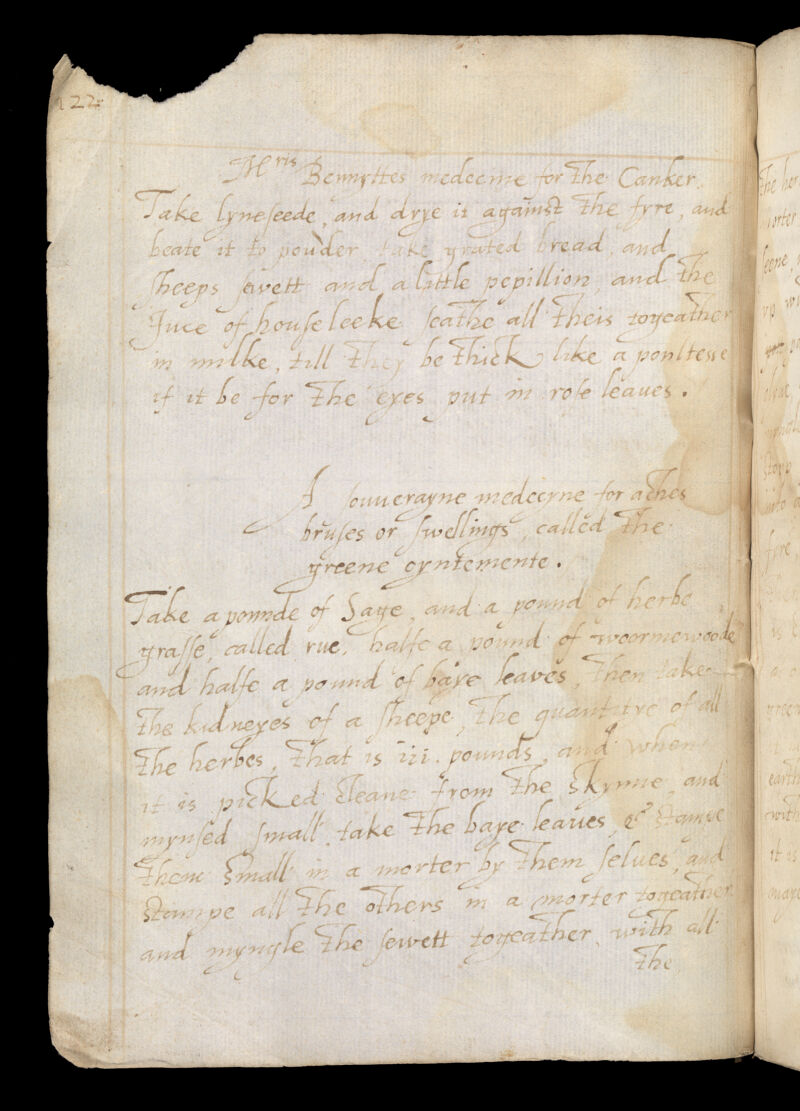 122
Mris Bennyttes medecine for the Canker.
Take lyneseede, and drye it against the fyre, and
beate it to pouder, take grated bread, and
sheeps sewett and a little pepillion, and the
Juce of houseleeke seathe all theis togeather
in milke, till they be thick like a poultesse
if it be for the eyes put in rose leaves.
A souverayne medecyne for aches
bruses or swellings, called the
greene oyntemente.
Take a pounde of Sage, and a pound of herbe
grasse, called rue, halfe a pound of woormewoode
and halfe a pound of baye leaves, then take
the kidneyes of a sheepe, the quantitye of all
the herbes, that is iii. pounds, and when
it is picked cleane from the skynne, and
mynsed small, take the baye leaves, & stampe
them small in a morter by them selves, and
stampe all the others in a morter togeather
and myngle the sewett togeather, with all
the
the her
morter
up
fyre,
is
green
earth
with
it is